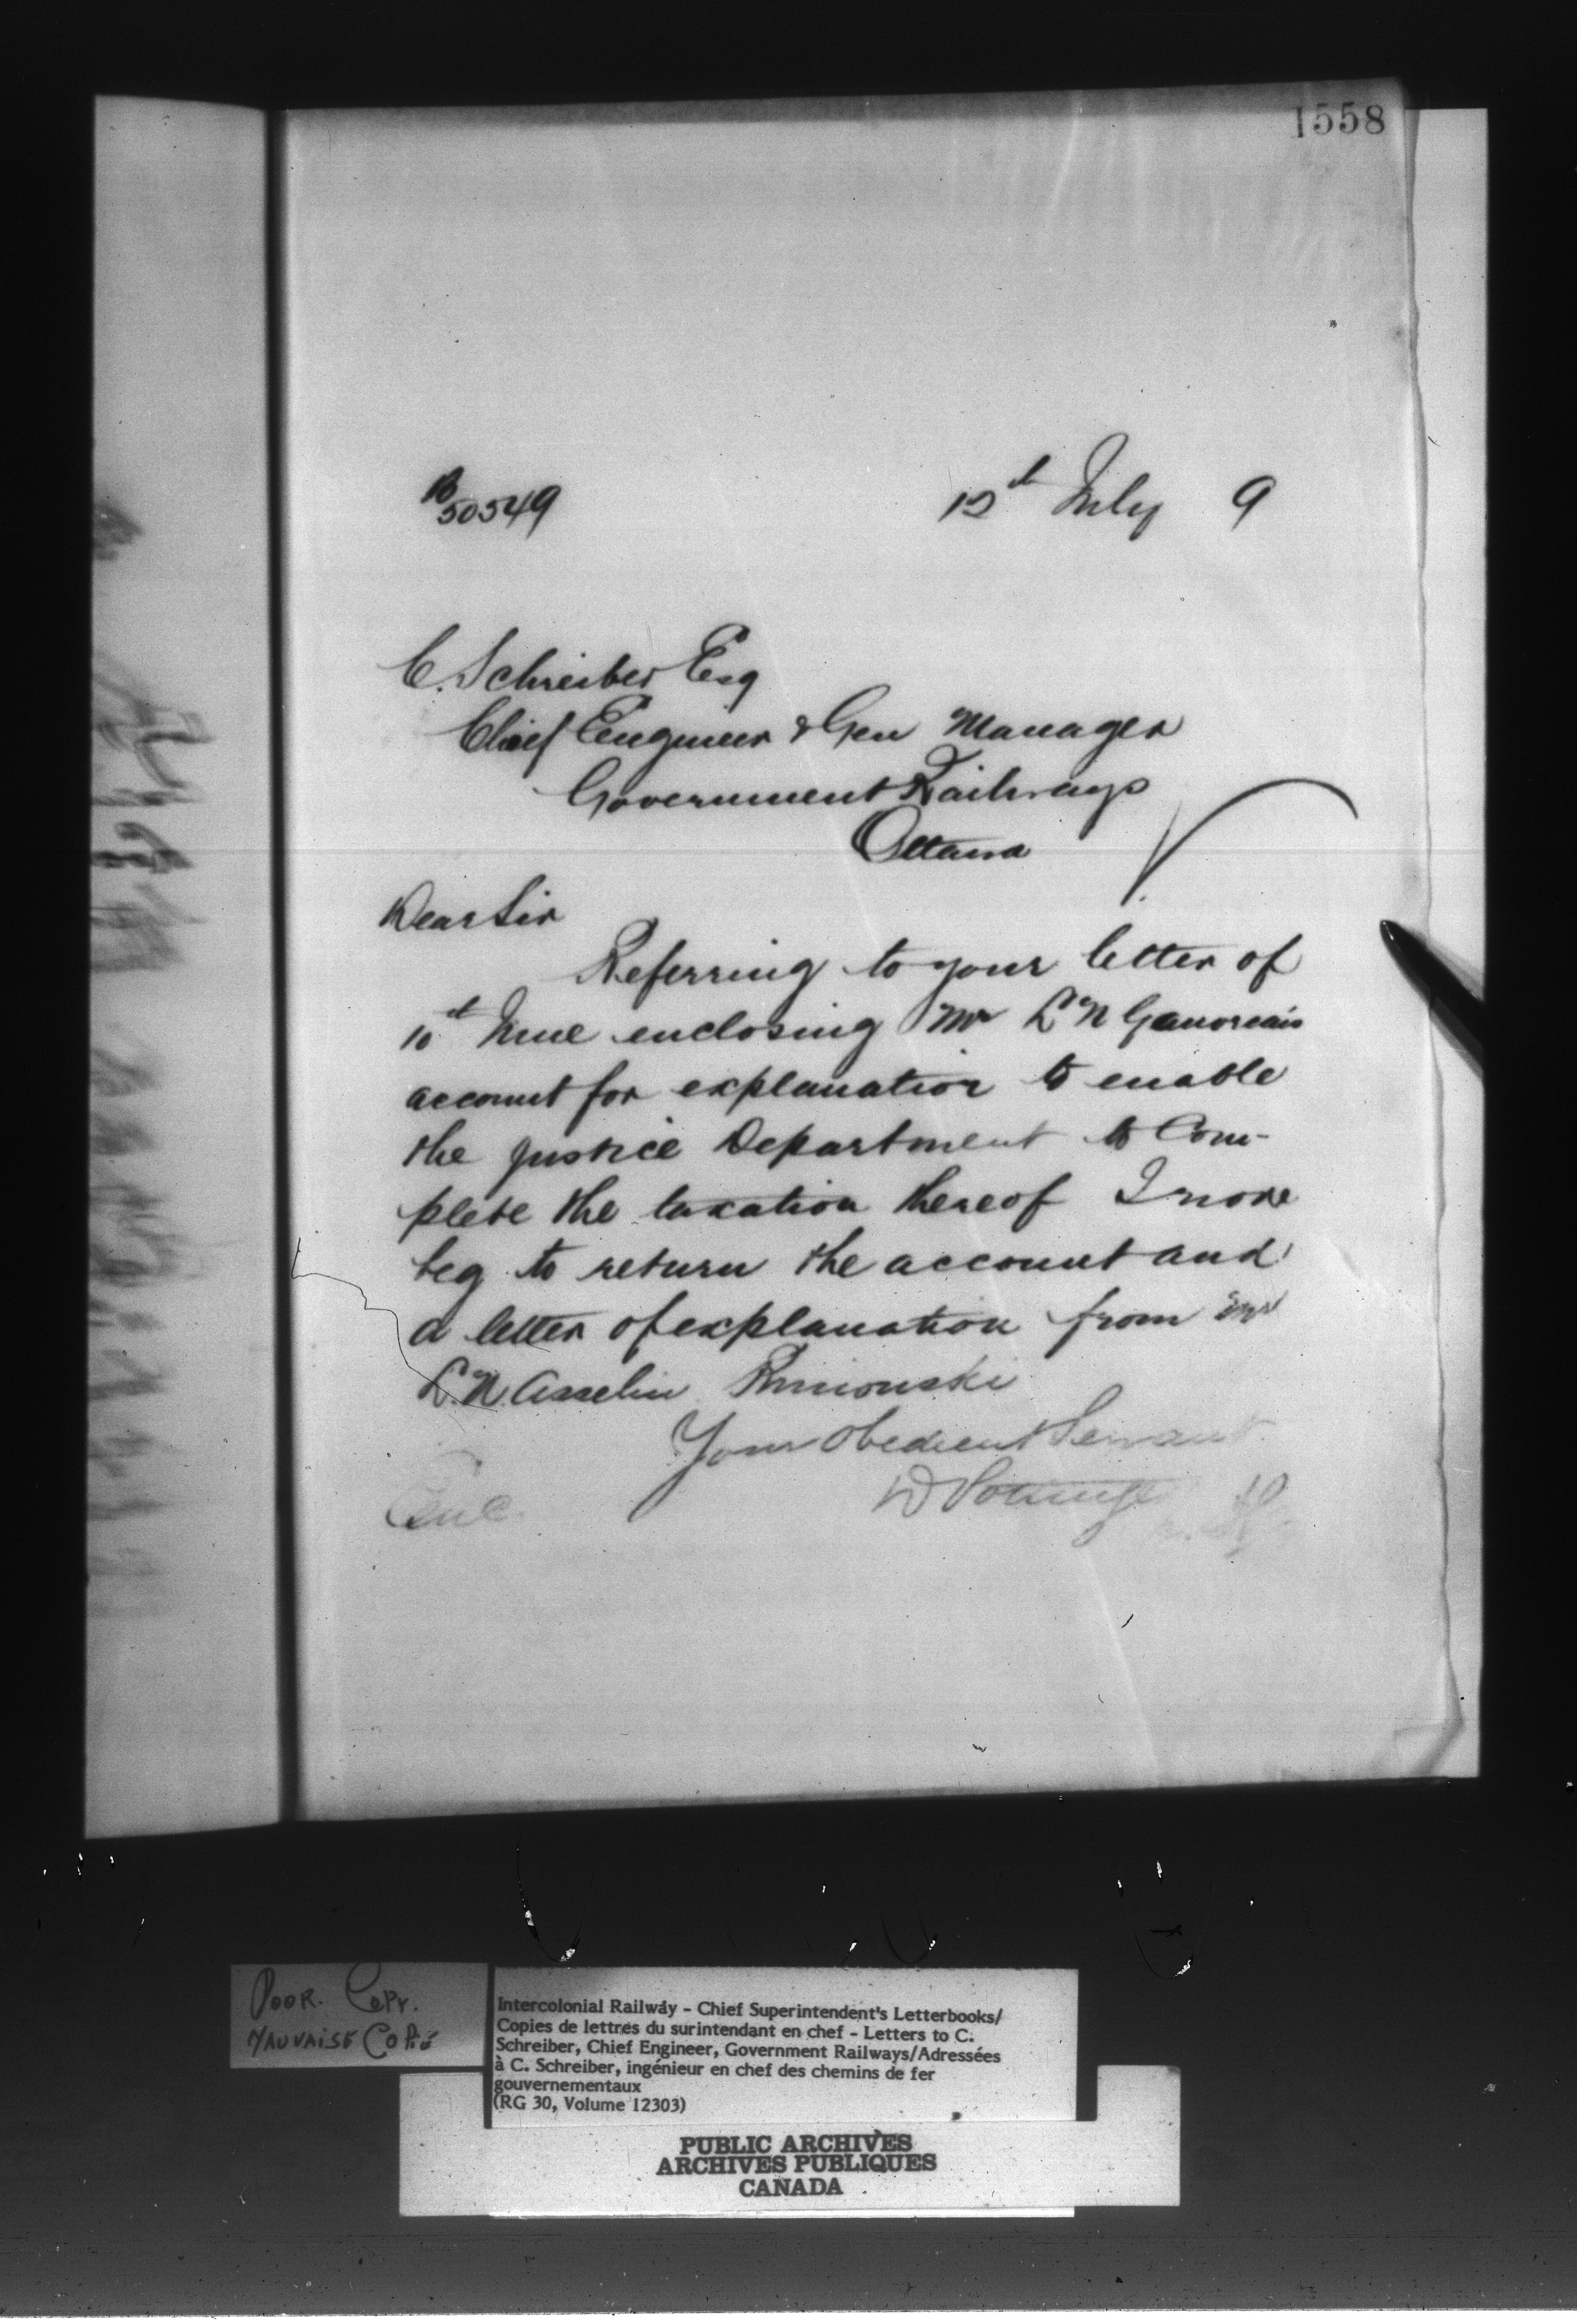 1558
50549
12th July 9
C. Schreiber Esq
Chief Engineer & Gen Manager
Government Railways
Ottawa
Dear Sir
Referring to your letter of
10th June enclosing Mr L N
account for explanation to enable
the Justice Department to Com-
plete the taxation thereof I now
beg to return the account and
a letter of explanation from Mr
L. N. Asselin Rimouski
Your Obedient Servant
D Pottinger
Enc.
POOR. COPY.
MAUVAISE COPIE
Intercolonial Railway - Chief Superintendent's Letterbooks/
Copies de lettres du surintendant en chef - Letters to C.
Schreiber, Chief Engineer, Government Railways/Adressées
à C. Schreiber, ingénieur en chef des chemins de fer
gouvernementaux
(RG 30, Volume 12303)
PUBLIC ARCHIVES
ARCHIVES PUBLIQUES
CANADA